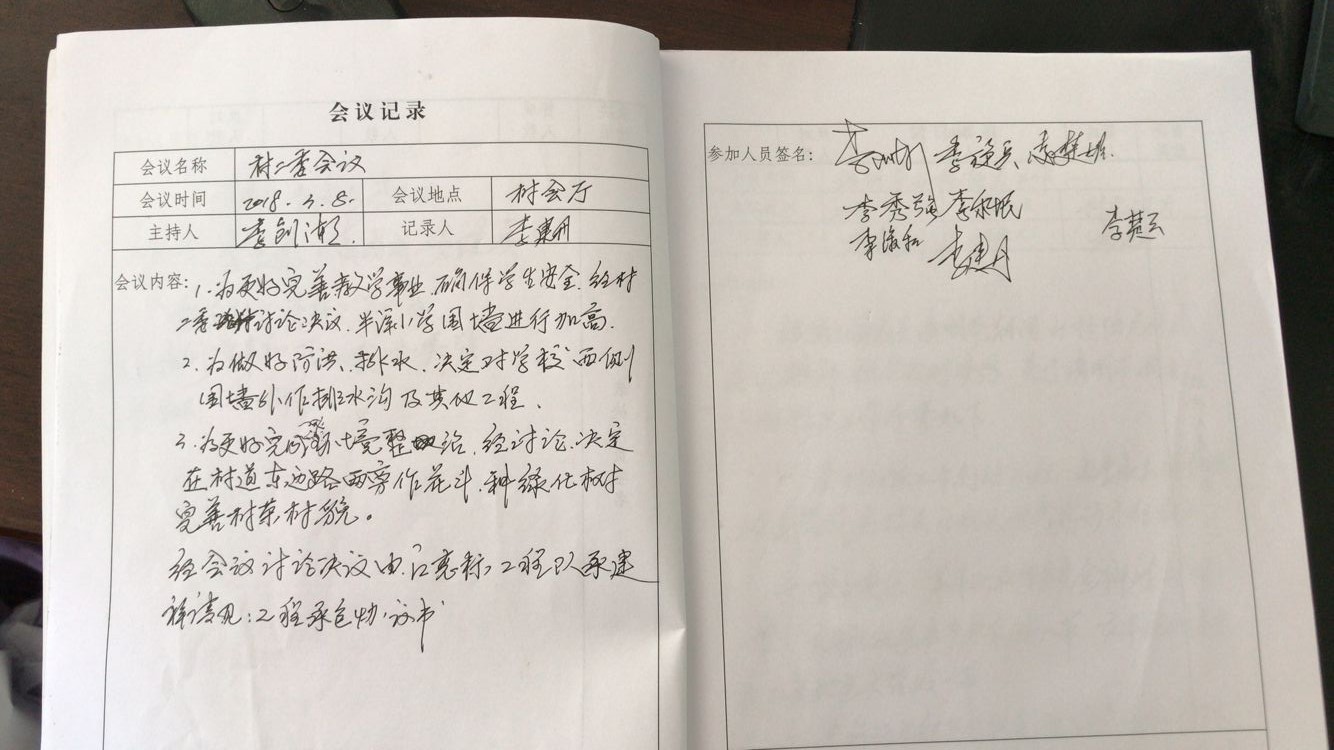 会议记录
会议名称 村二委会议
会议时间 2018.3.8. 会议地点 村会厅
主持人 李创 记录人 李
会议内容：1.为更好完善教学事业.确保学生安全.经村
二委讨论决议.半洋小学围墙进行加高.
2.为做好防洪、排水.决定对学校西侧
围墙外作排水沟及其他工程.
3.为更好完成环境整治.经讨论.决定
在村道东边路两旁作花斗.种绿化树
完善村茶村貌。
经会议讨论决议由 工程队承建
详请见:工程承包协议书
参加人员签名： 李
李秀强 李和
李 李建丹 李楚云